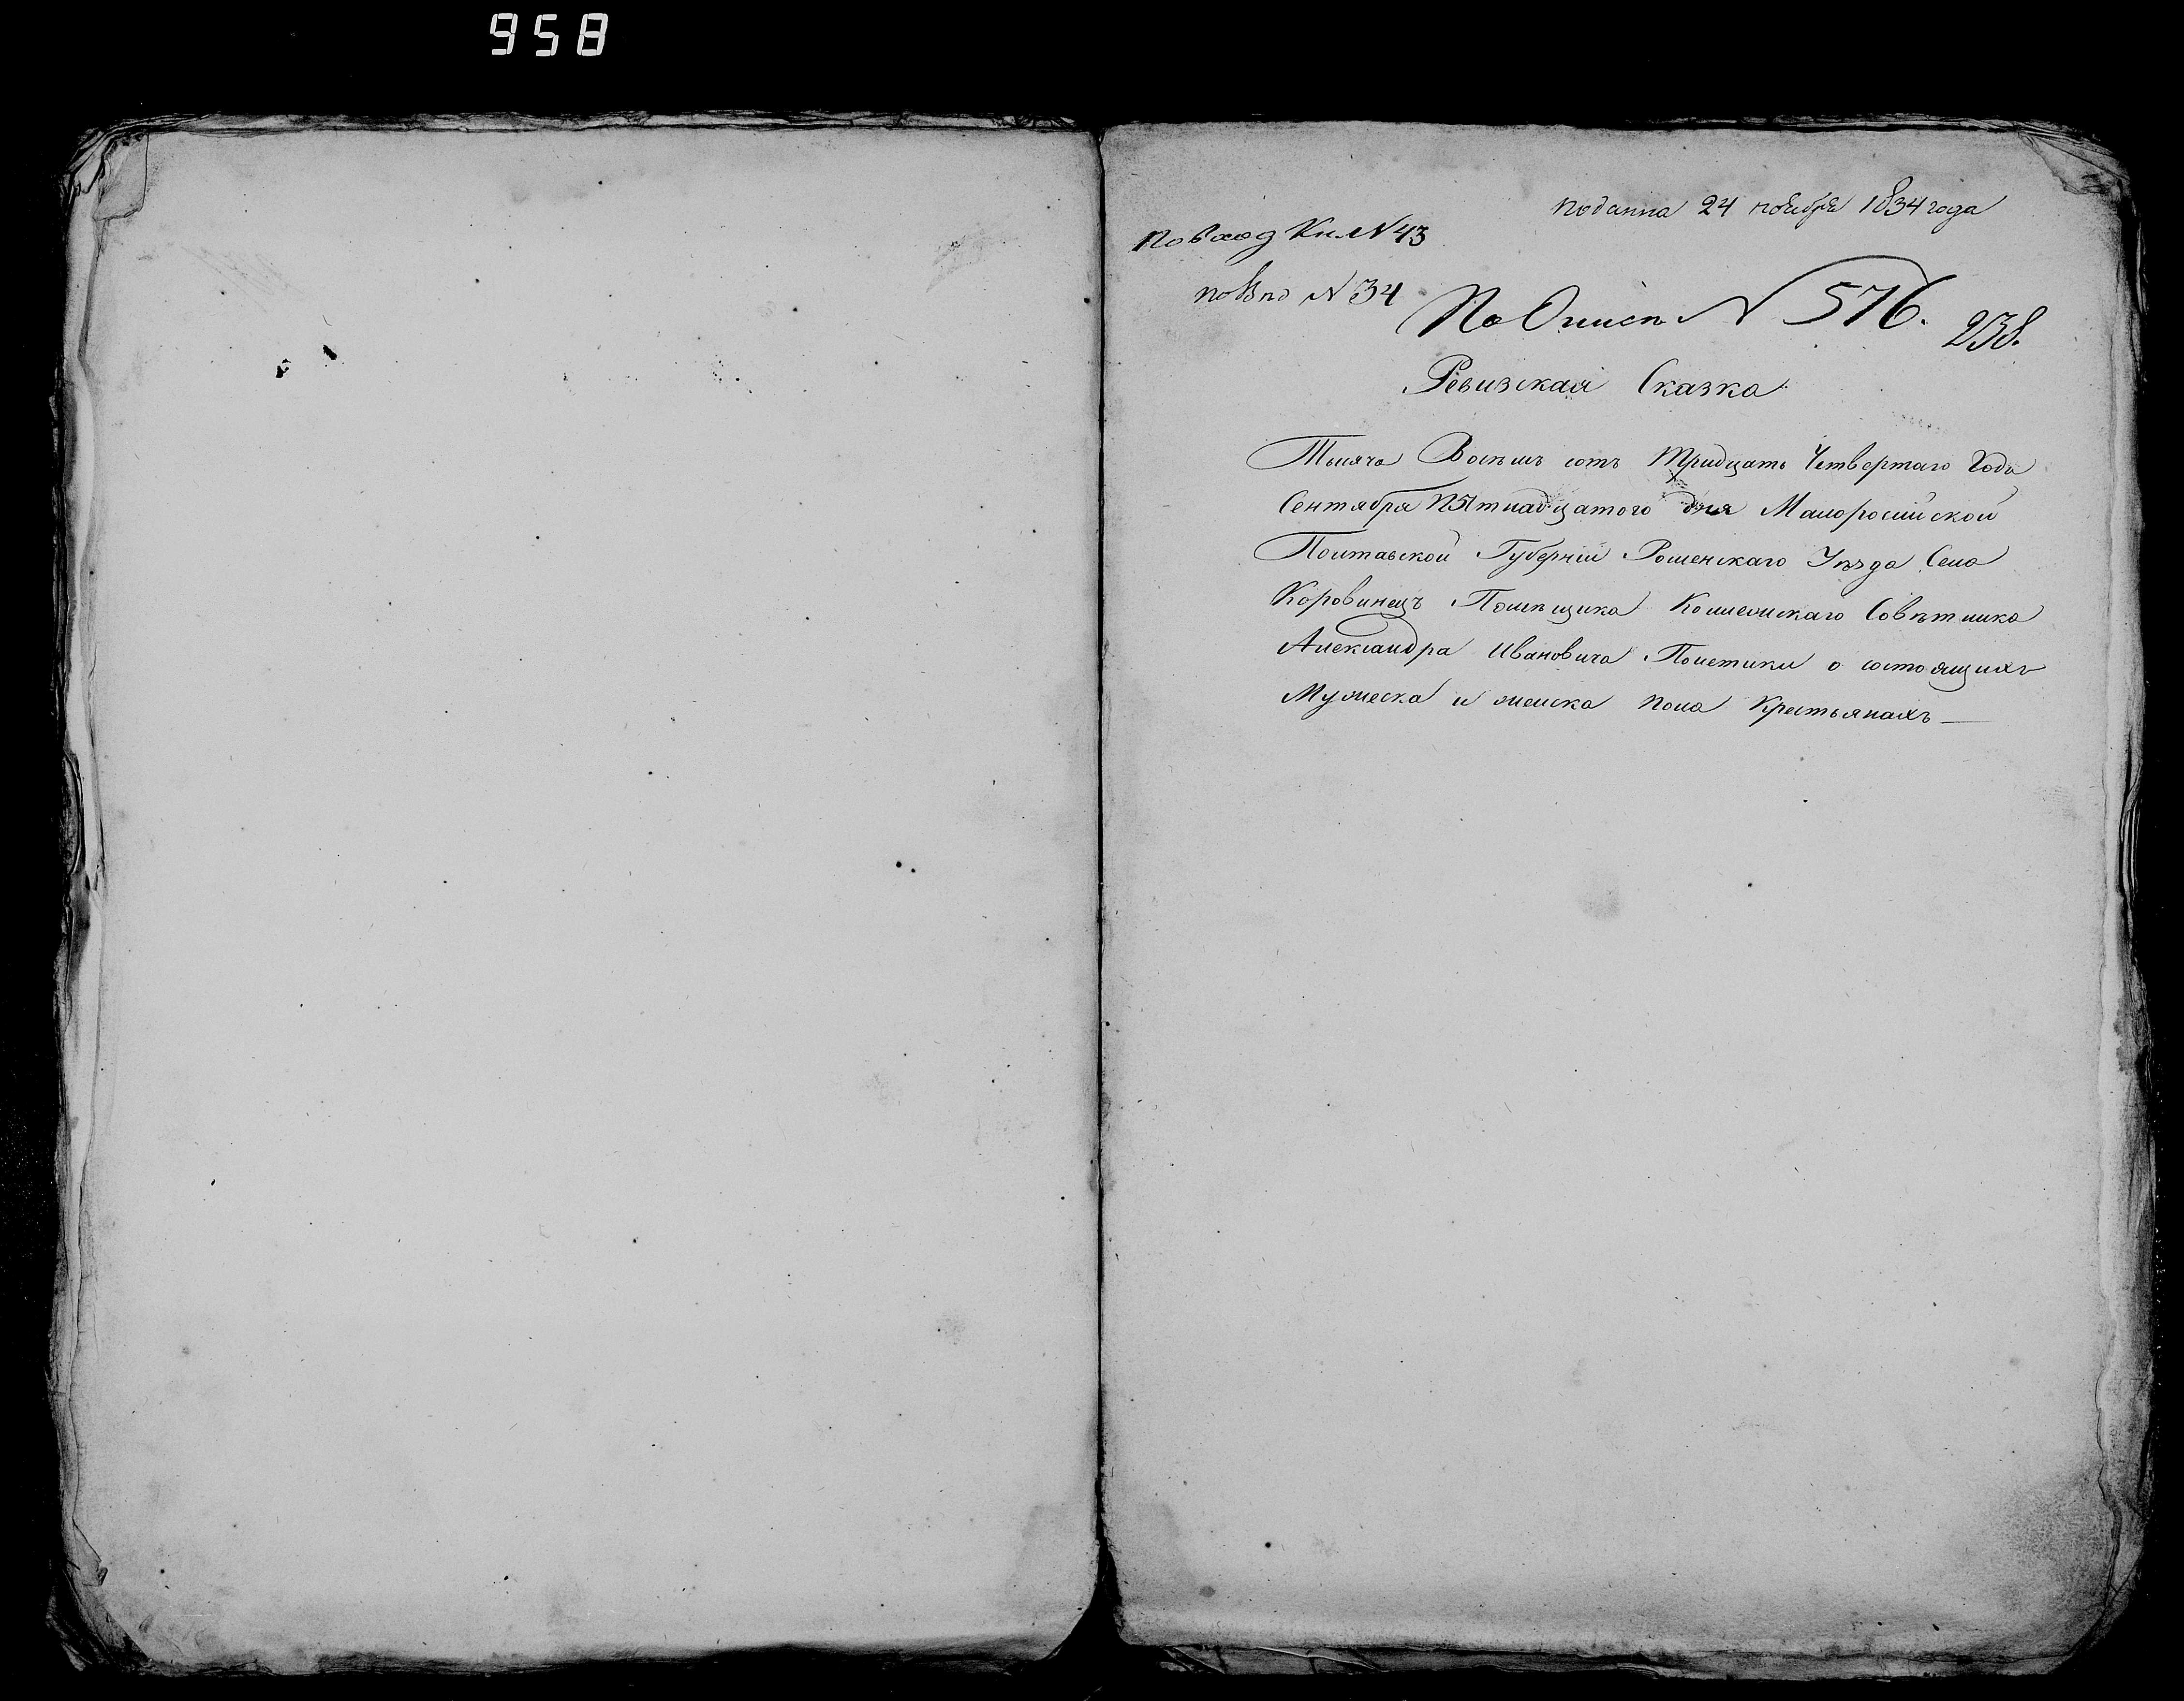 958
подання 24 ноября 1834 года
по Вход Кн. N 43
N 34
По Описи N 576.
238.
Ревизская Сказка
Тысяча Восемь сотъ Тридцать Четвертаго Года
Сентября Пятнадцатого дня Малоросийской
Полтавской Губерніи Роменскаго Уѣзда Села
Коровинецъ Помѣщика Коллежскаго Совѣтника
Александра Ивановича Полетики о состоящихъ
Мужеска и женска пола Крестьянахъ —